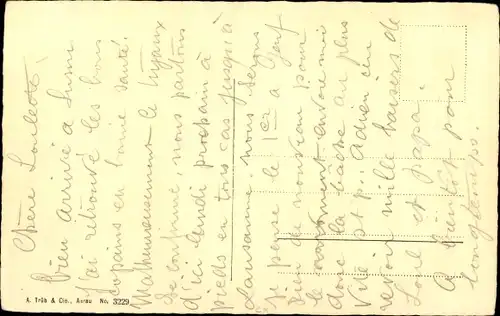 Chère Loulette!
Bien arrivé à
j'ai retrouvé les bons
copains en bonne santé.
Malheureusement ce tuyaux
se confirme, nous partons
d'ici lundi prochain à
pieds en tous cas jusqu'à
Lausanne, nous serons
je pense le 1er à Genf
rien de nouveau pour
le moment envoie moi
donc la bâche au plus
vite st. p. Adieu au
revoir mille baisers de
Loul et papa.
A bientôt pour
longtemps.
A. Trüb & Cie., Aarau No. 3229